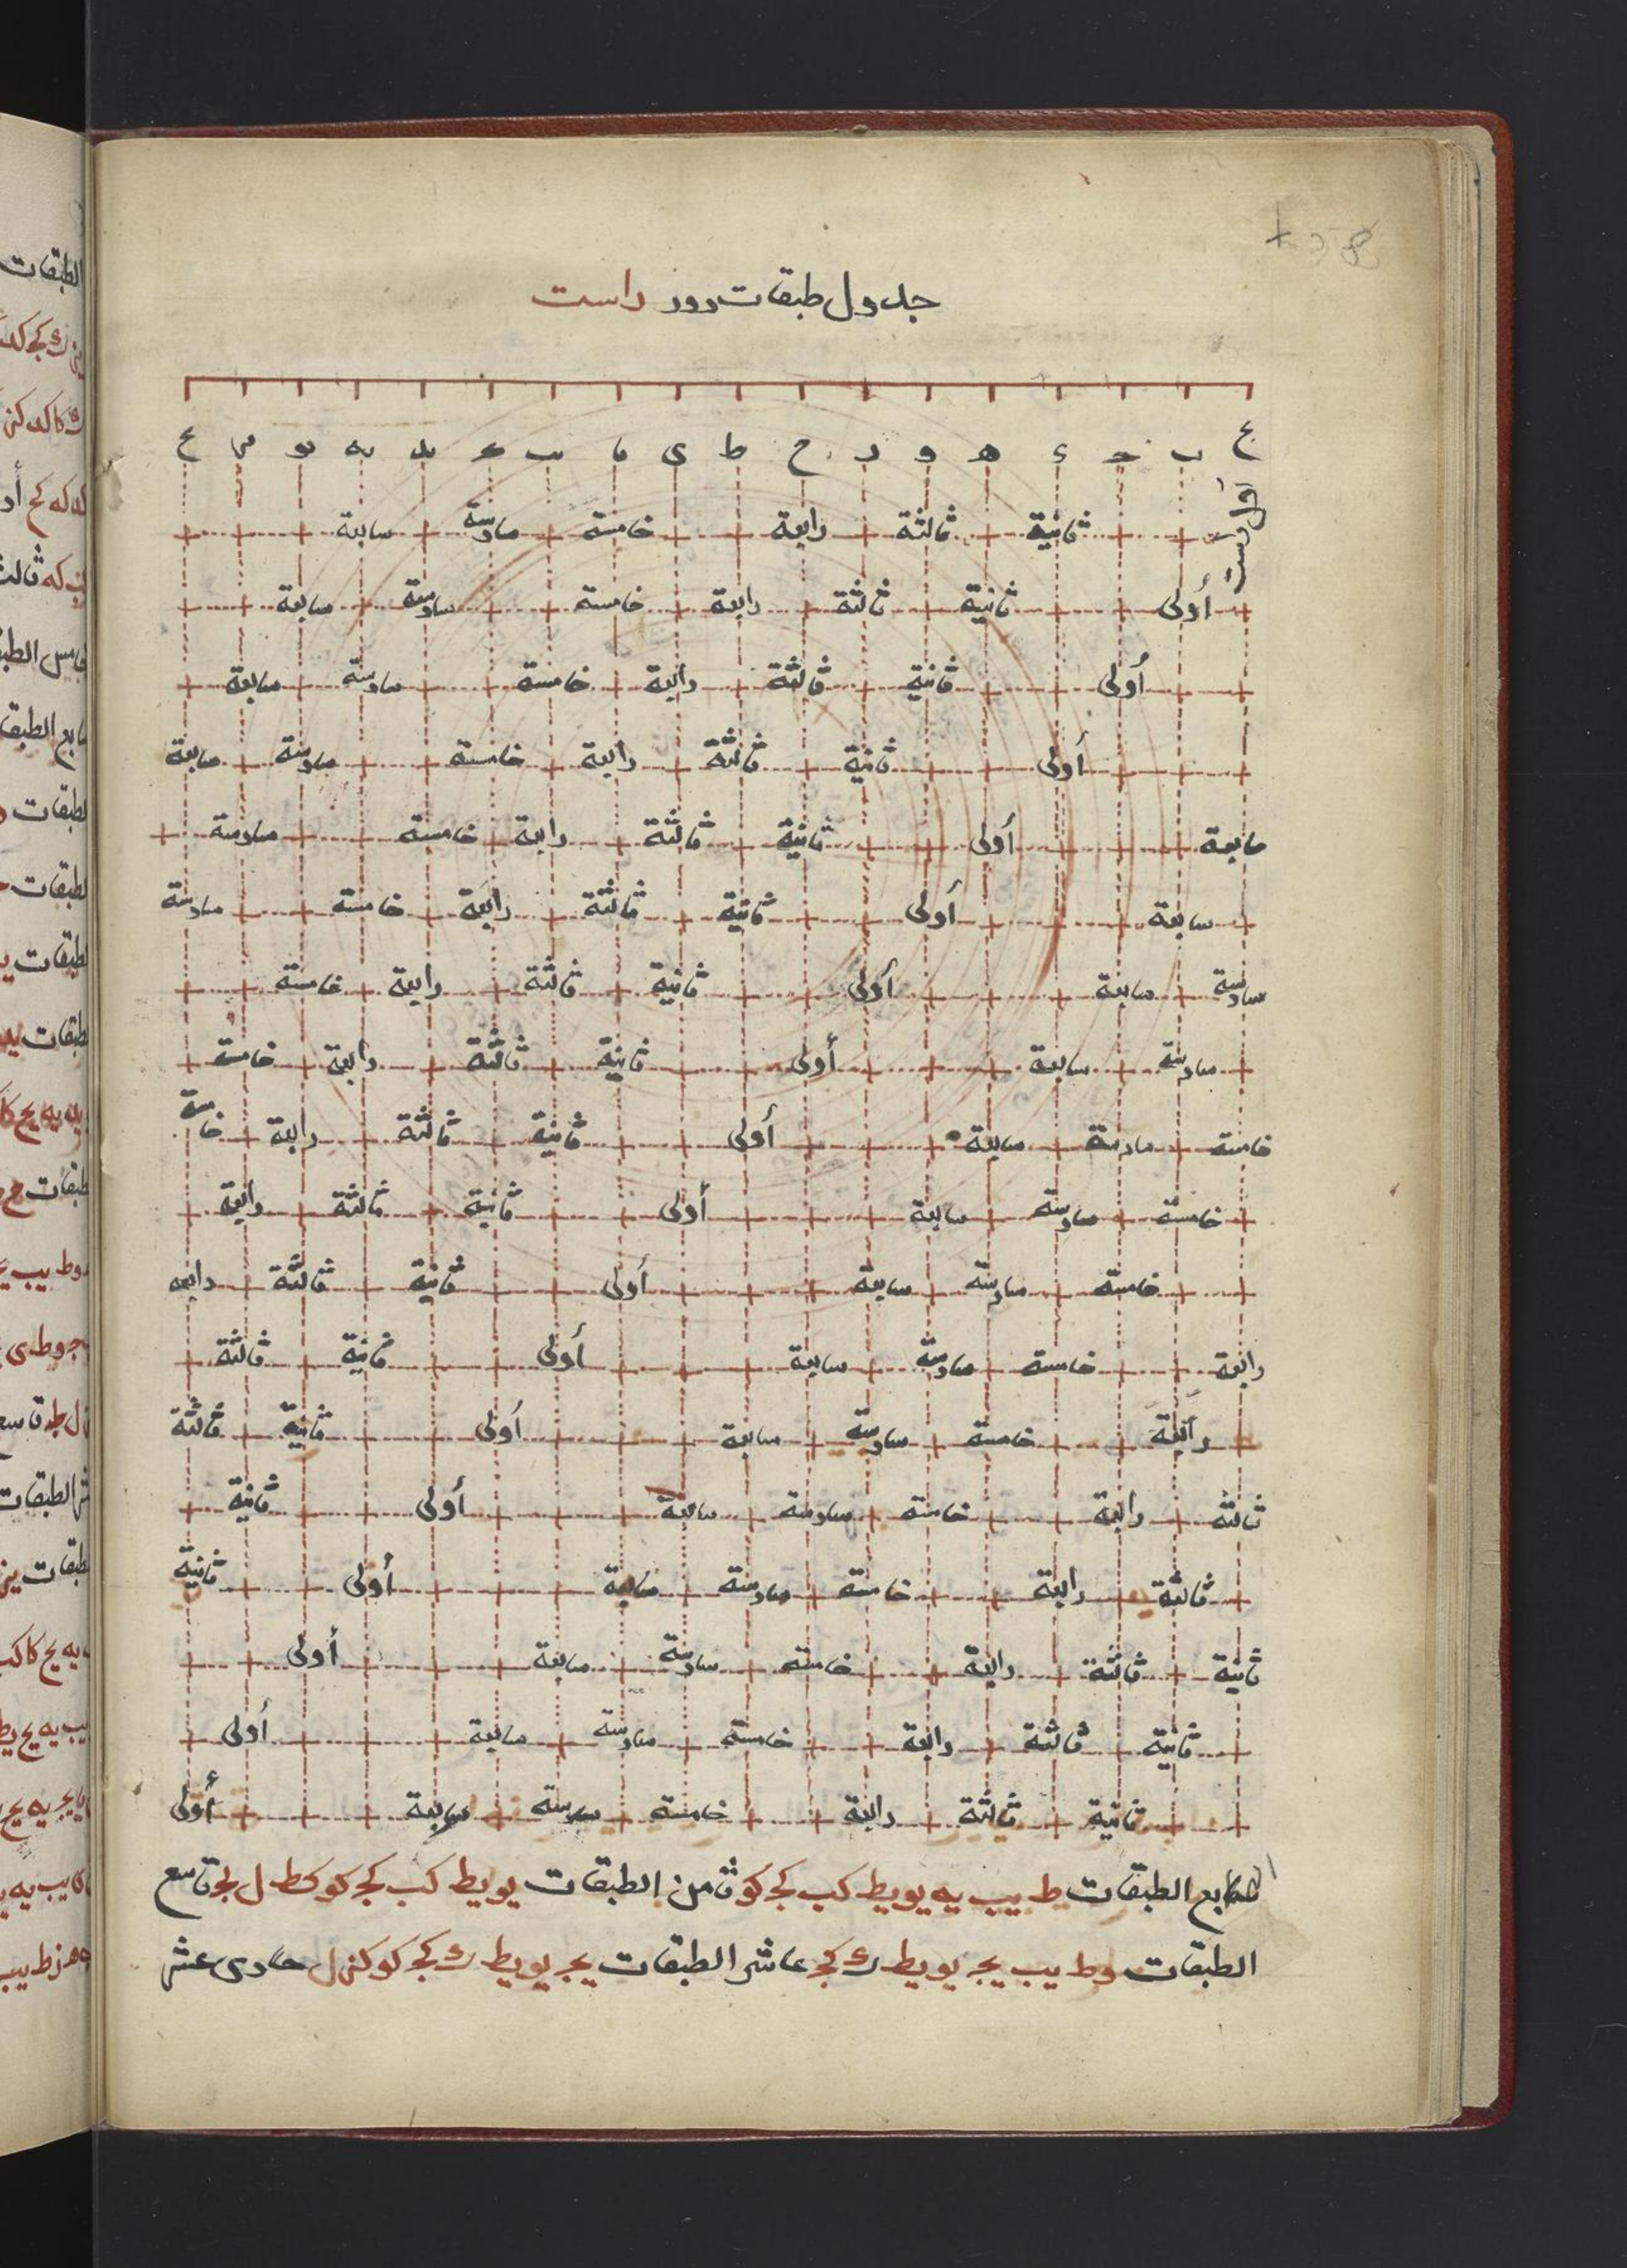 جدول طبقات دور راست
ب ج ء ه و ز ح ط ى يا يب يج يد يه يو يز يح
ثانية ثالثة رابعة خامسة سادسة سابعة
أولى ثانية ثالثة رابعة خامسة سادسة سابعة
أولى ثانية ثالثة رابعة خامسة سادسة سابعة
أولى ثانية ثالثة رابعة خامسة سادسة سابعة
سابعة أولى ثانية ثالثة رابعة خامسة سادسة
سابعة أولى ثانية ثالثة رابعة خامسة سادسة
سادسة سابعة أولى ثانية ثالثة رابعة خامسة
سادسة سابعة أولى ثانية ثالثة رابعة خامسة
خامسة سادسة سابعة أولى ثانية ثالثة رابعة خامسة
خامسة سادسة سابعة أولى ثانية ثالثة رابعة
خامسة سادسة سابعة أولى ثانية ثالثة رابعة
رابعة خامسة سادسة سابعة أولى ثانية ثالثة
رابعة خامسة سادسة سابعة أولى ثانية ثالثة
ثالثة رابعة خامسة سادسة سابعة أولى ثانية
ثالثة رابعة خامسة سادسة سابعة أولى ثانية
ثانية ثالثة رابعة خامسة سادسة سابعة أولى
ثانية ثالثة رابعة خامسة سادسة سابعة أولى
ثانية ثالثة رابعة خامسة سادسة سابعة أولى
الطبقات ط يب يه يو يط كب كج كو ثامن الطبقات يو يط كب كج كو كط ل لج تاسع
الطبقات و ط يب يج يو يط ك كج عاشر الطبقات يج يو يط ك كج كو كز ل حادى عشر